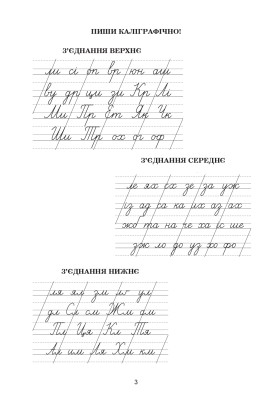 ПИШИ КАЛІГРАФІЧНО!
З'ЄДНАННЯ ВЕРХНЄ
ли сі оп вр юн аш
ву др ци зи Кр Лі
Ми Пр Ет Як Чк
Ши Тр ох ог оф
З'ЄДНАННЯ СЕРЕДНЄ
ле ях вх зе за уж
із ад са ка их аз ах
жо та на че ха ю ше
зж ло до уз хо фо
З'ЄДНАННЯ НИЖНЄ
ля ял зм ул
дл Сл см Жм фм
Пл Ця Кл Тя
Ал им Ля Хм км
3